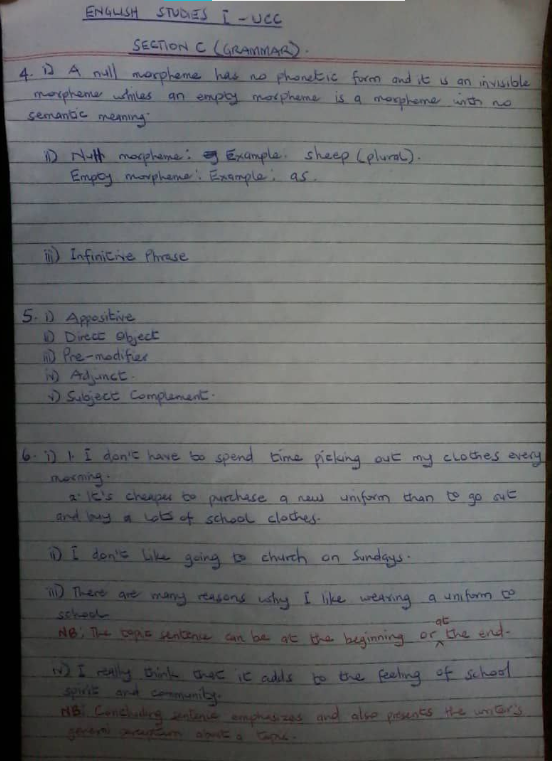 ENGLISH STUDIES I - UCC
SECTION C (GRAMMAR).
4. i) A null morpheme has no phonetic form and it is an invisible
morpheme whiles an empty morpheme is a morpheme with no
semantic meaning.
ii) Null morpheme: Example. sheep (plural).
Empty morpheme: Example: as.
iii) Infinitive Phrase
5. i) Appositive
ii) Direct Object
iii) Pre-modifier
iv) Adjunct.
v) Subject Complement.
6. i) 1. I don't have to spend time picking out my clothes every
morning.
2. It's cheaper to purchase a new uniform than to go out
and buy a lots of school clothes.
ii) I don't like going to church on Sundays.
iii) There are many reasons why I like wearing a uniform to
school
NB: The topic sentence can be at the beginning or at the end.
iv) I really think that it adds to the feeling of school
spirit and community.
NB: Concluding sentence emphasizes and also presents the writer's
general about a topic.